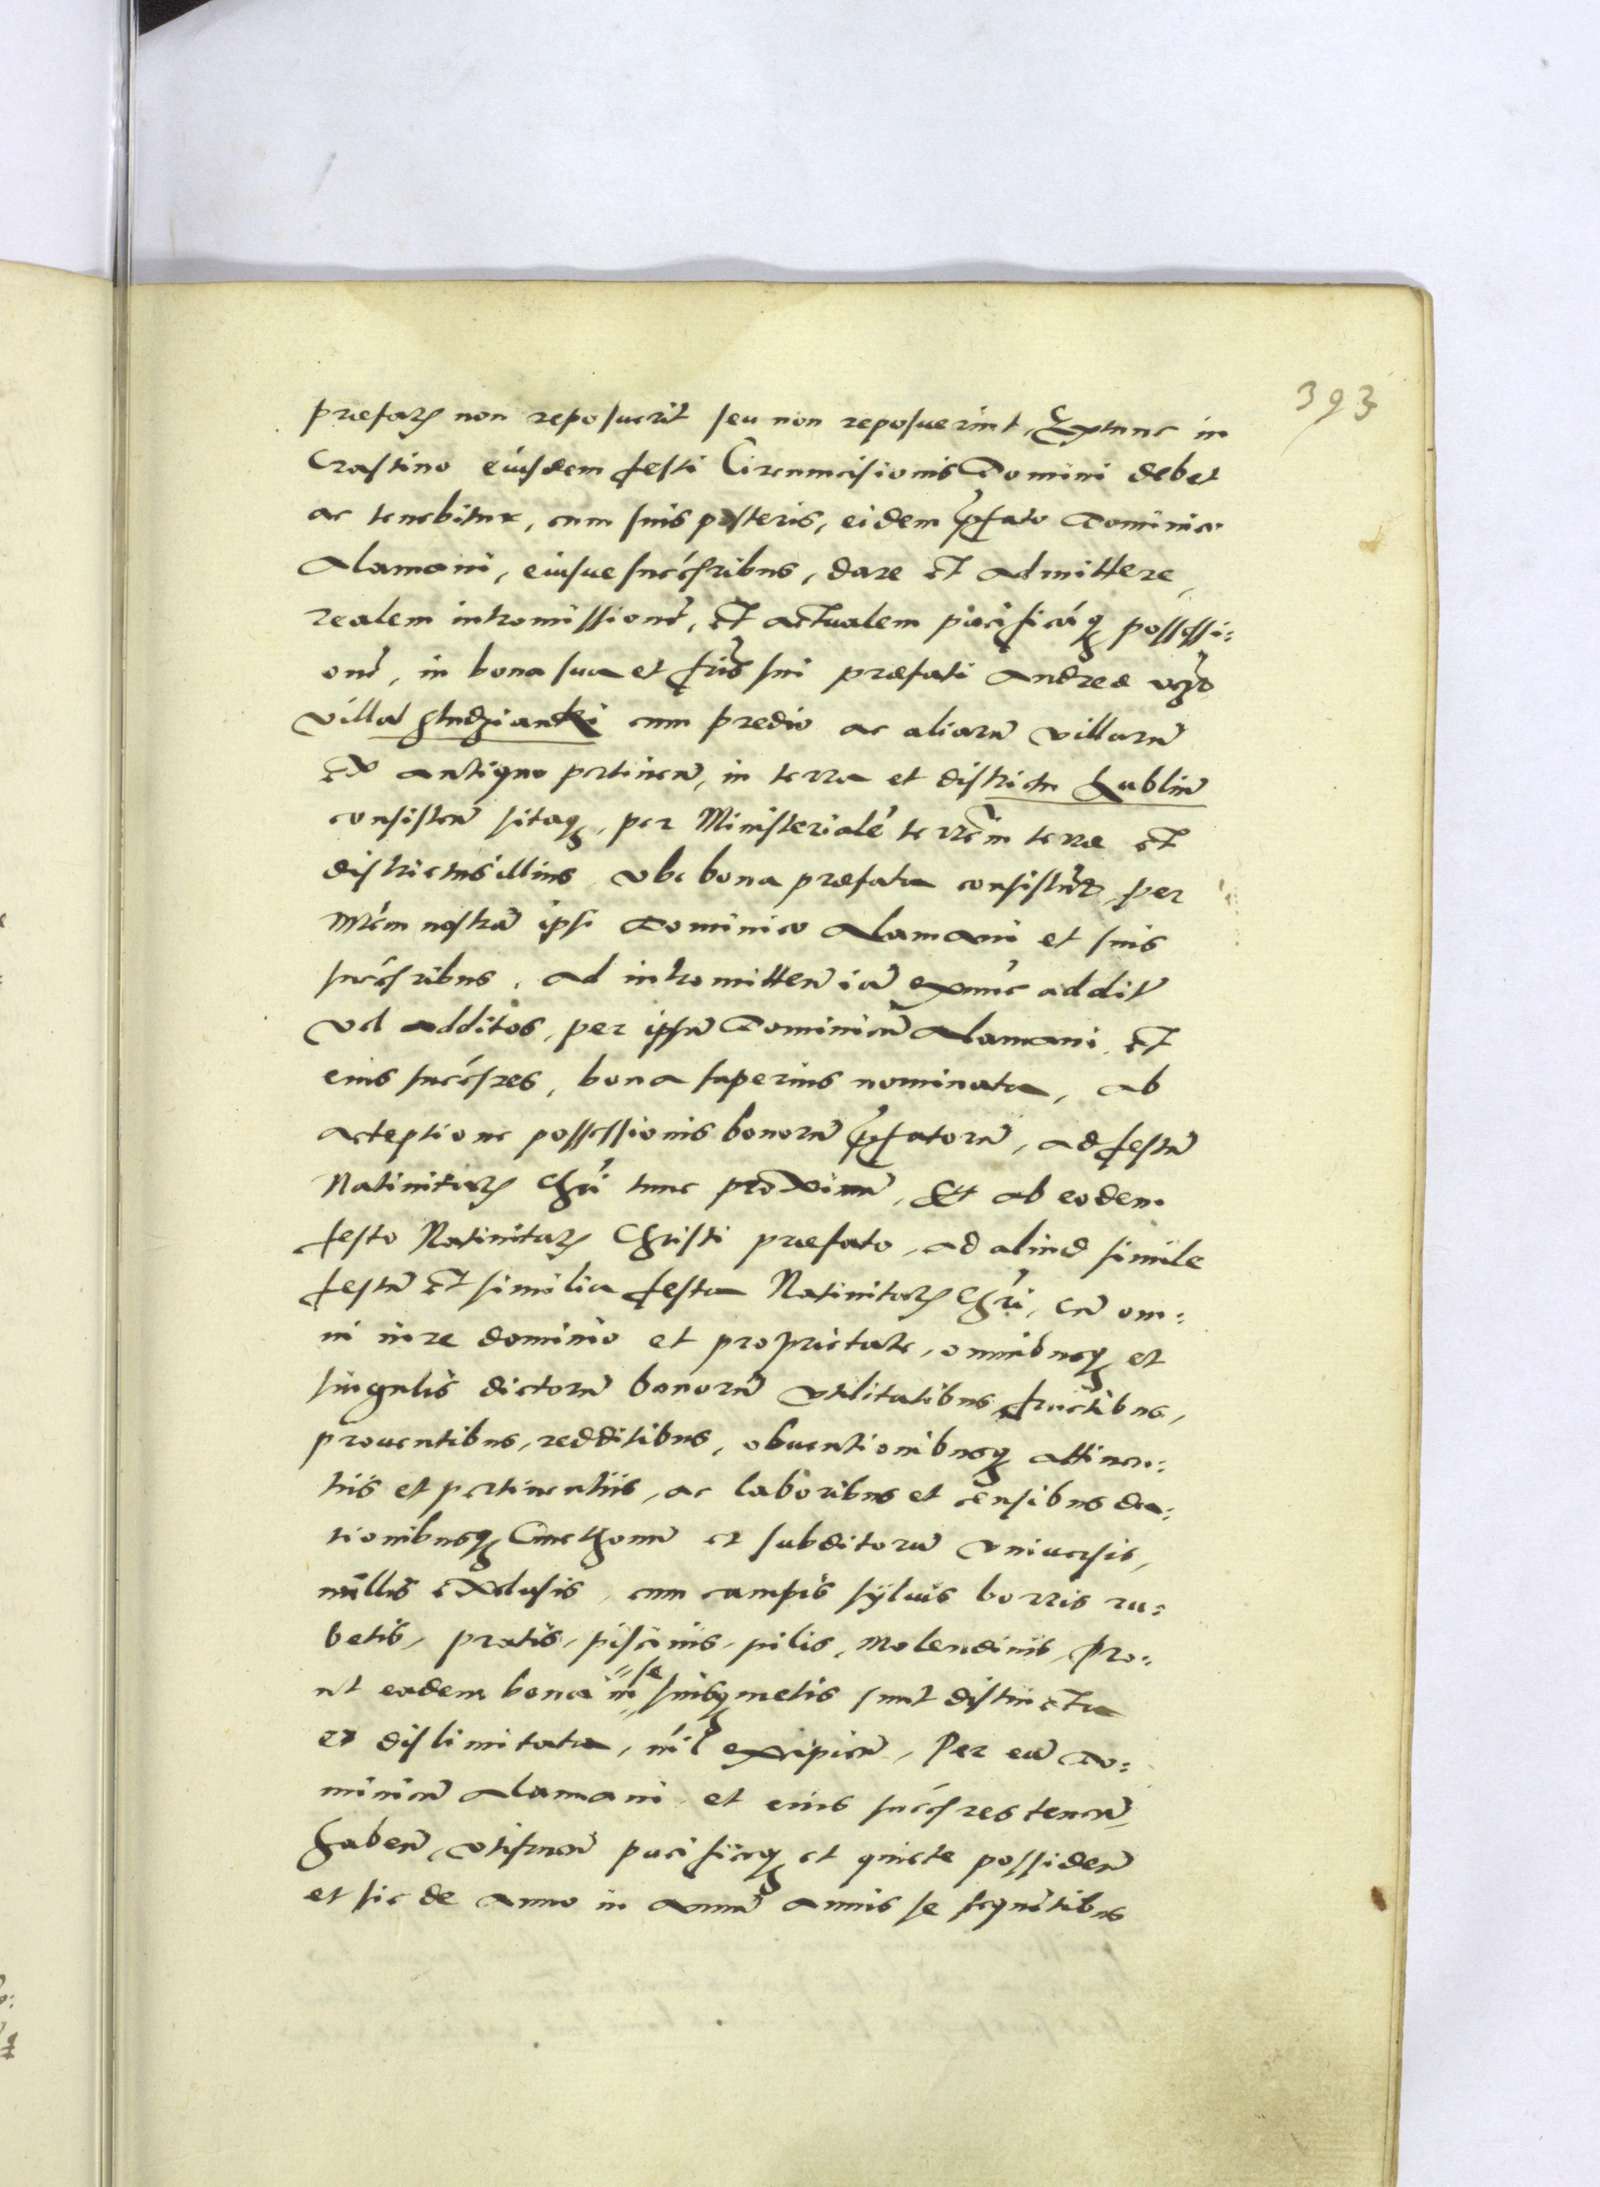 393
præfatꝭ non reposuerit seu non reposuerint, Extunc in
Crastino eiusdem festi Circumcisionis Domini debet
ac tenebitur, cum suis posteris, eidem p̃fato Dominico
Alamani, eiusue succ̃sribus, dare et admittere,
realem intromissionẽ, et actualem pacificáqꝫ possessi:
onẽ, in bona sua et fr̃is sui præfati Andreæ
villã Studzianki cum predio ac aliarũ villarũ
ex antiquo pertinen̄, in terra et districtu Lublin̄
consisten̄ sitaqꝫ, per Ministerialẽ terrẽm terræ et
districtus illius vbi bona præfata consistũt, per
Mtẽm nostrã ipsi Dominico Alamani et suis
succ̃sribus, ad intromitten̄ iã exnũc additũ
vel additos, per ipsũ Dominicũ Alamani, et
eius succ̃sres, bona superius nominata, ab
acceptione possessionis bonorũ p̃fatorũ, ad festũ
Natiuitatꝭ Chr̃i tunc proximũ, Et ab eodem
festo Natiuitatꝭ Christi præfato, ad aliud simile
festũ et similia festa Natiuitatꝭ Chr̃i, cũ om:
ni iure dominio et proprietate, omnibusqꝫ et
singulis dictorũ bonorũ vtilitatibus, fructibus,
prouentibus, redditibus, obuentionibusqꝫ attinen:
tiis et pertinentiis, ac laboribus et censibus da:
tionibusqꝫ Cmethonũ et subditorũ vniuersis,
nullis exclusis, cum campis syluis borris ru:
betis, pratis, piscinis, molendinis, pro:
ut eadem bona in se suisqꝫ metis sunt distincta
et dislimitata, nil excipien̄, Per eũ Do:
minicũ Alamani et eius succ̃sres tenen̄,
haben̄, vtifruen̄ pacificeqꝫ et quiete possiden̄
et sic de anno in annũ annis se sequẽtibus